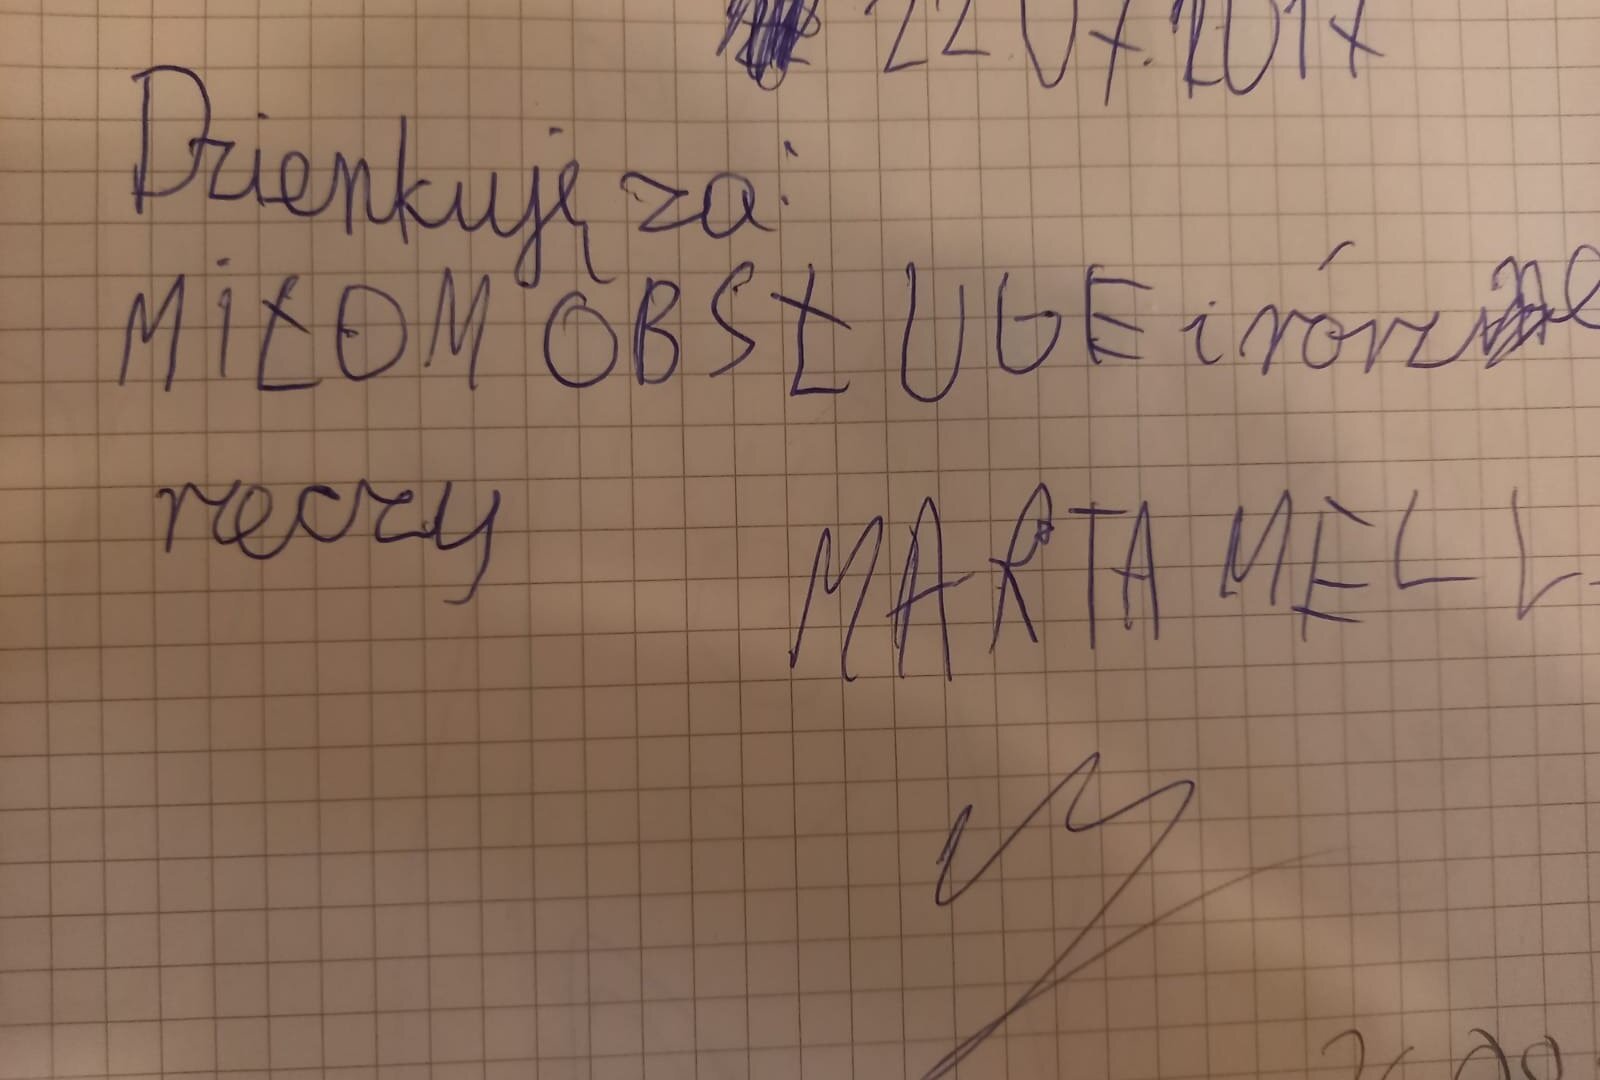 22.07.2017
Dzienkuję za:
MiŁOM OBSŁUGE i rórzne
reczy
MARTA MELL